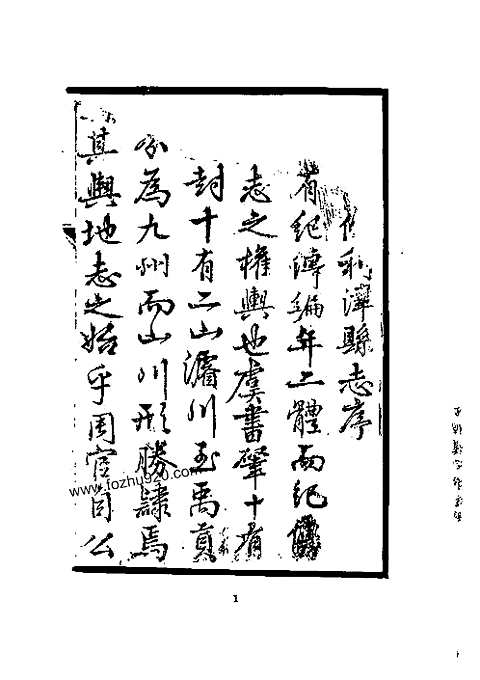 利津縣志序
有紀傳編年二體而紀傳
志之權輿也虞書肇十有
封十有二山濬川至禹貢
分為九州而山川形勝隸焉
其輿地志之始乎周官自公
www.fozhu920.com
1